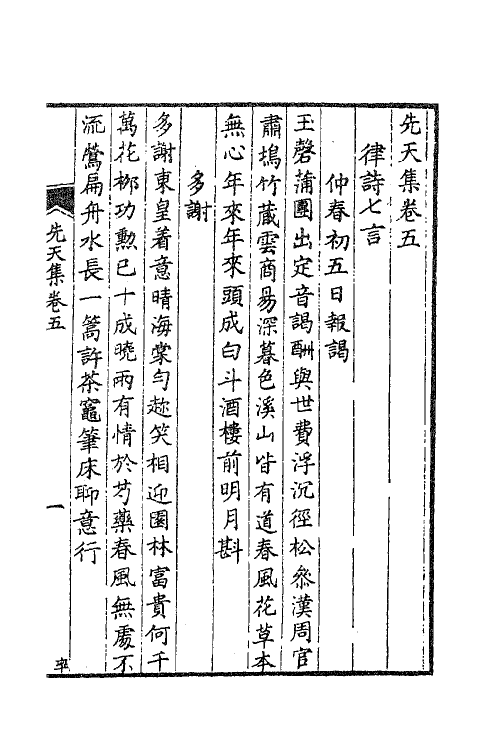 先天集卷五
律詩七言
仲春初五日報謁
玉磬蒲團出定音謁酬與世費浮沉徑松叅漢周官
肅塢竹蔵雲商易深暮色溪山皆有道春風花草本
無心年來年來頭成白斗酒樓前明月斟
多謝
多謝東皇着意晴海棠勻趂笑相迎園林富貴何千
萬花柳功勲已十成曉雨有情於芍藥春風無處不
流鶯扁舟水長一篙許茶竈筆床聊意行
先天集卷五
一